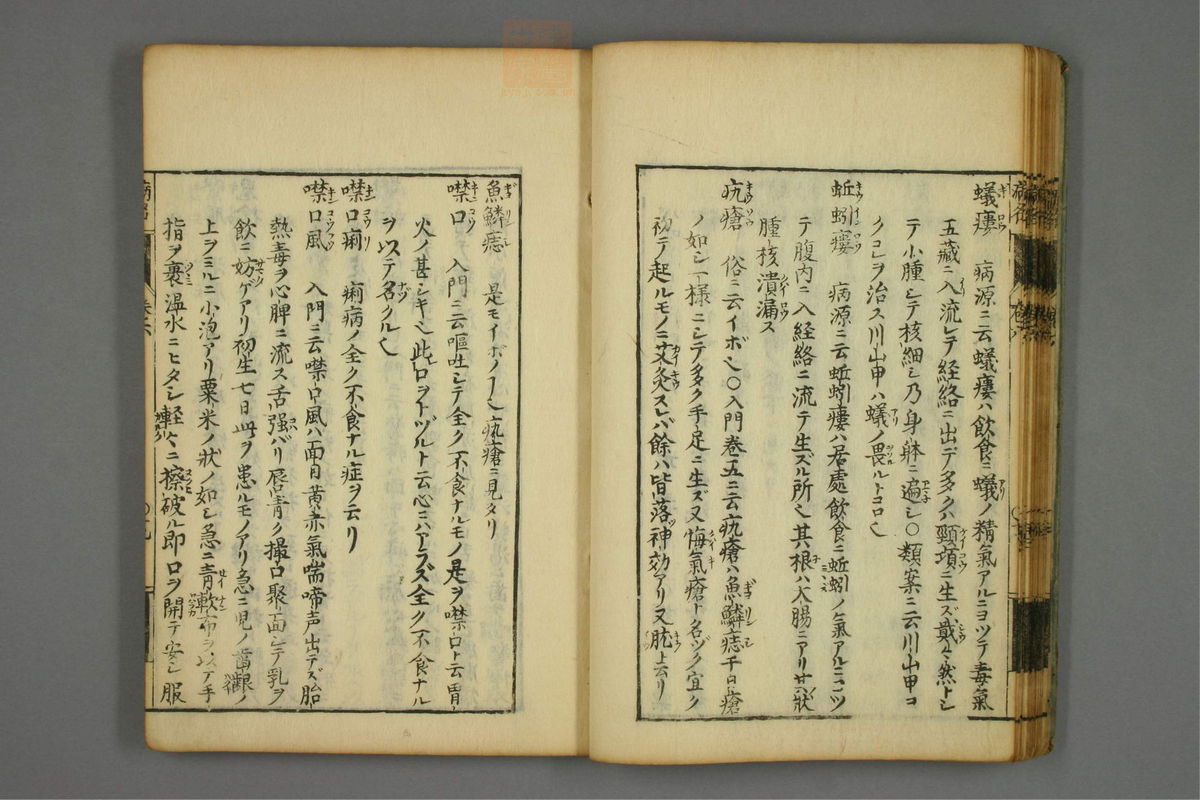 蟻瘻 病源ニ云蟻瘻ハ飲食ニ蟻ノ精氣アルニヨツテ毒氣
五藏ニ入流レテ経絡ニ出デ多クハ頸項ニ生ズ戢々然トシ
テ小腫シテ核細シ乃身躰ニ遍シ○類案ニ云川山甲コ
クコレヲ治ス川山甲ハ蟻ノ畏ルトコロ也
蚯蚓瘻 病源ニ云蚯蚓瘻ハ居處飲食ニ蚯蚓ノ氣アルニヨツ
テ腹内ニ入経絡ニ流テ生ズル所也其根ハ大腸ニアリ其状
腫核潰漏ス
疣瘡 俗ニ云イボ也○入門巻五ニ云疣瘡ハ魚鱗痣千日瘡
ノ如シ一様ニシテ多ク手足ニ生ズ又悔氣瘡ト名ヅク宜ク
初テ起ルモノニ艾灸スレバ餘ハ皆落神効アリ又肬ト云リ
魚鱗痣 是モイボノ也疣瘡ニ見タリ
噤口 入門ニ云嘔吐シテ全ク不食ナルモノ是ヲ噤口ト云胃
火ノ甚シキ也此口ヲトヅルト云心ニハアラズ全ク不食ナル
ヲ以テ名クル也
噤口痢 痢病ノ全ク不食ナル症ヲ云リ
噤口風 入門ニ云噤口風ハ面目黄赤氣喘啼声出デズ胎
熱毒ヲ心脾ニ流ス舌強バリ唇青ク撮口聚面シテ乳ヲ
飲ニ妨ゲアリ初生七日此ヲ患ルモノアリ急ニ児ノ齒齦ノ
上ヲミルニ小泡アリ粟米ノ状ノ如シ急ニ青軟布ヲ以テ手
指ヲ裹温水ニヒタシ軽々ニ擦破ル即口ヲ開テ安シ服